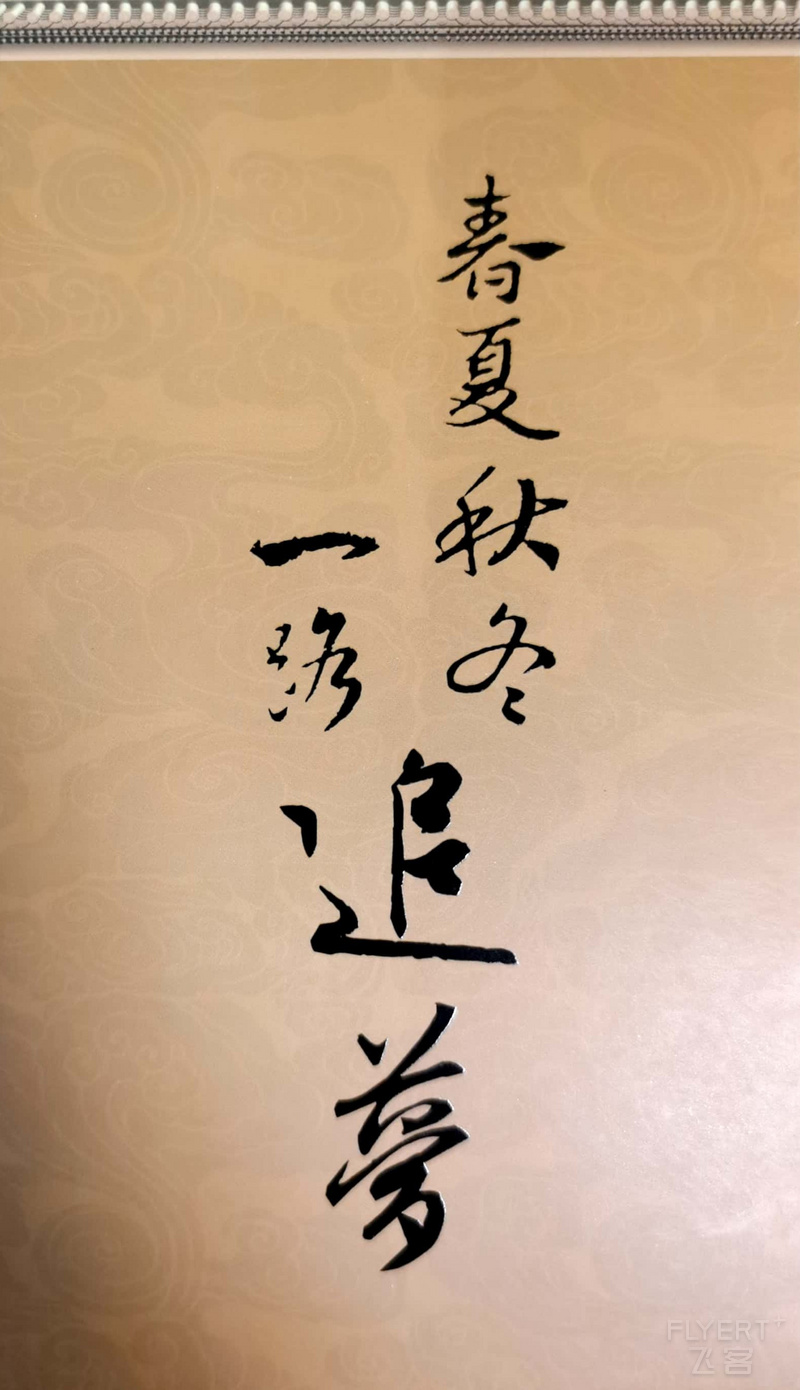 春夏秋冬
一路
追夢
FLYERT+
飞客